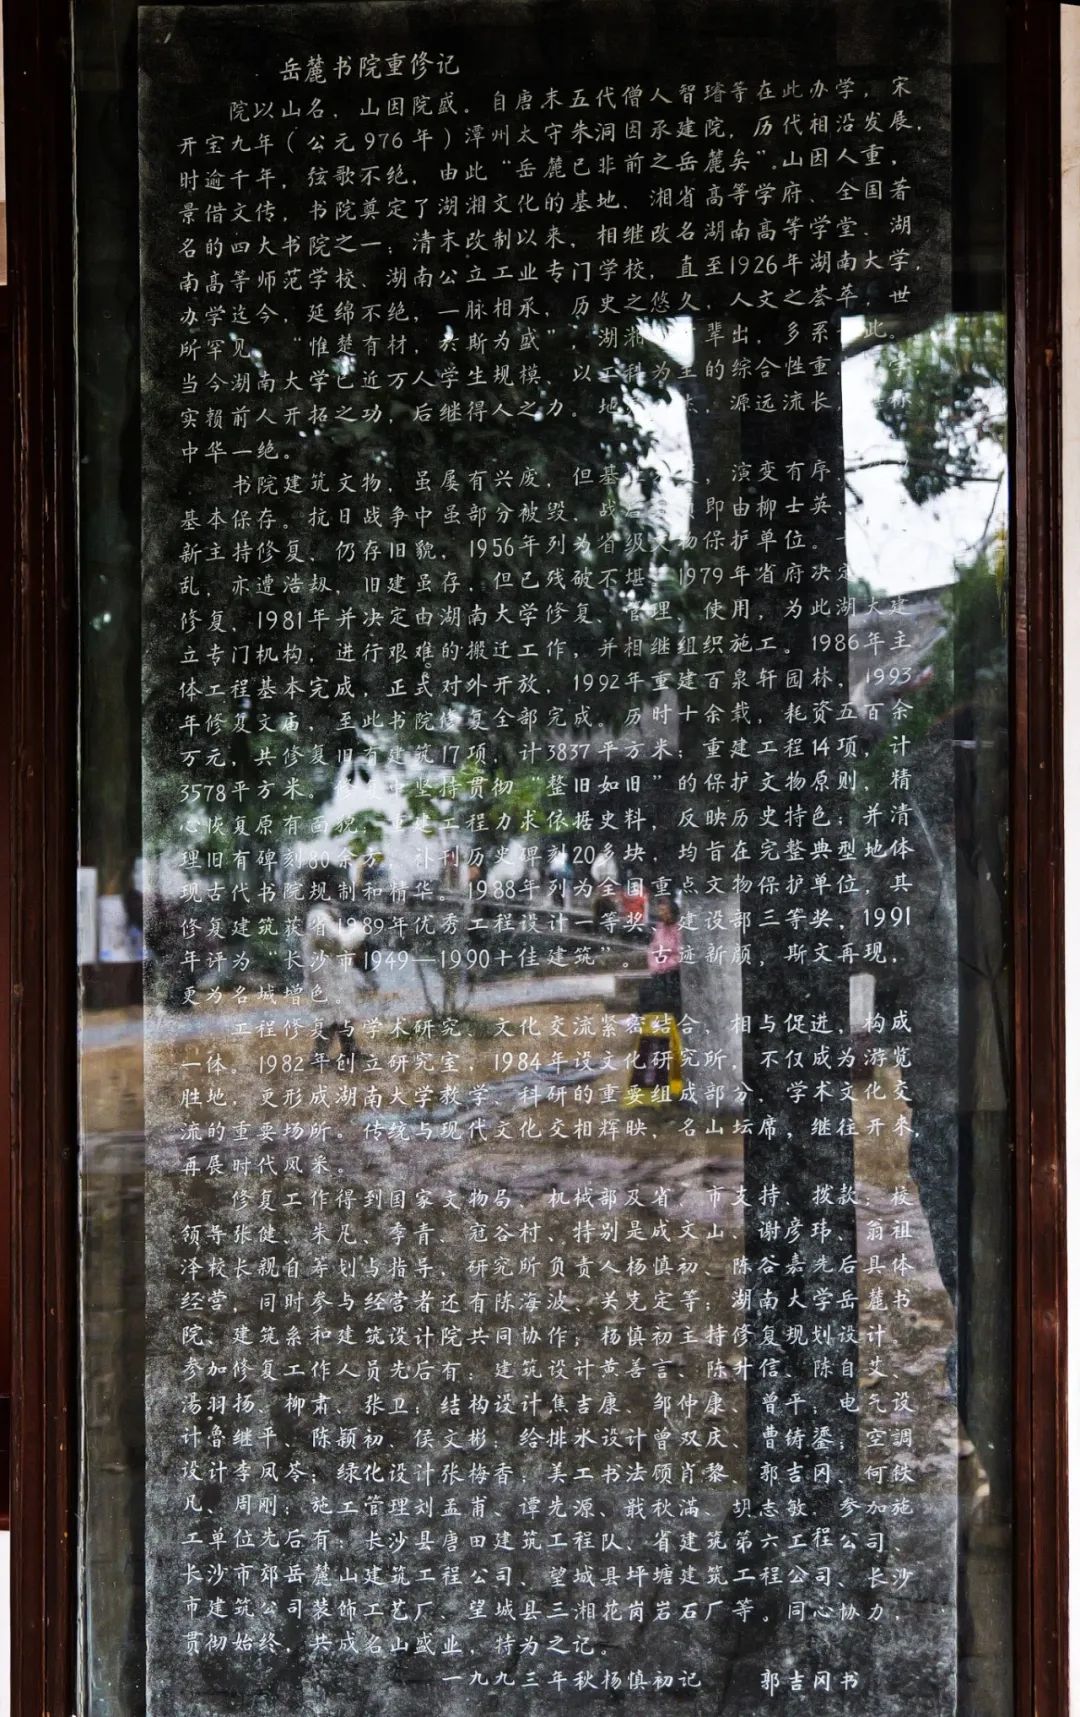 岳麓书院重修记
院以山名，山因院盛。自唐末五代僧人智璿等在此办学，宋
开宝九年（公元976年）潭州太守朱洞因承建院，历代相沿发展，
时逾千年，弦歌不绝，由此“岳麓已非前之岳麓矣”.山因人重，
景借文传，书院奠定了湖湘文化的基地、湘省高等学府、全国著
名的四大书院之一；清末改制以来，相继改名湖南高等学堂、湖
南高等师范学校、湖南公立工业专门学校，直至1926年湖南大学，
办学迄今，延绵不绝，一脉相承，历史之悠久，人文之荟萃，世
所罕见。“惟楚有材，于斯为盛”，湖湘 辈出，多系 此。
当今湖南大学已近万人学生规模、以工科为主的综合性重 学
实赖前人开拓之功，后继得人之力。地 杰，源远流长， 称
中华一绝。
书院建筑文物，虽屡有兴废，但基 ，演变有序
基本保存。抗日战争中虽部分被毁，战后 即由柳士英、
新主持修复，仍存旧貌，1956年列为省级文物保护单位。
乱，亦遭浩劫，旧建虽存，但已残破不堪。1979年省府决定
修复，1981年并决定由湖南大学修复、管理、使用，为此湖大建
立专门机构，进行艰难的搬迁工作，并相继组织施工。1986年主
体工程基本完成，正式对外开放，1992年重建百泉轩园林，1993
年修复文庙，至此书院修复全部完成。历时十余载，耗资五百余
万元，共修复旧有建筑17项，计3837平方米；重建工程14项，计
3578平方米。修复中坚持贯彻“整旧如旧”的保护文物原则，精
心恢复原有面貌；重建工程力求依据史料，反映历史特色；并清
理旧有碑刻80余方，补刊历史碑刻20多块，均旨在完整典型地体
现古代书院规制和精华。1988年列为全国重点文物保护单位，其
修复建筑获省1989年优秀工程设计一等奖、建设部三等奖，1991
年评为“长沙市1949—1990十佳建筑”。古迹新颜，斯文再现，
更为名城增色。
工程修复与学术研究、文化交流紧密结合，相与促进，构成
一体。1982年创立研究室，1984年设文化研究所，不仅成为游览
胜地，更形成湖南大学教学、科研的重要组成部分、学术文化交
流的重要场所。传统与现代文化交相辉映，名山坛席，继往开来，
再展时代风采。
修复工作得到国家文物局、机械部及省、市支持、拨款；校
领导张健、朱凡、季青、寇谷村、特别是成文山、谢彦玮、翁祖
泽校长亲自筹划与指导，研究所负责人杨慎初、陈谷嘉先后具体
经营，同时参与经营者还有陈海波、关先定等；湖南大学岳麓书
院、建筑系和建筑设计院共同协作；杨慎初主持修复规划设计。
参加修复工作人员先后有：建筑设计黄善言、陈升信、陈自艾、
湯羽扬、柳肃、张卫；结构设计焦吉康、邹仲康、曾平；电气设
计鲁继平、陈颖初、侯文彬；给排水设计曾双庆、曹铸鎏；空調
设计李凤苓；绿化设计张梅香；美工书法顾肖黎、郭吉冈、何铁
凡、周刚；施工管理刘孟甫、谭先源、戢秋滿、胡志敏，参加施
工单位先后有：长沙县唐田建筑工程队、省建筑第六工程公司、
长沙市郊岳麓山建筑工程公司、望城县坪塘建筑工程公司、长沙
市建筑公司装饰工艺厂、望城县三湘花岗岩石厂等。同心协力，
贯彻始终，共成名山盛业，特为之记。
一九九三年秋杨慎初记 郭吉冈书